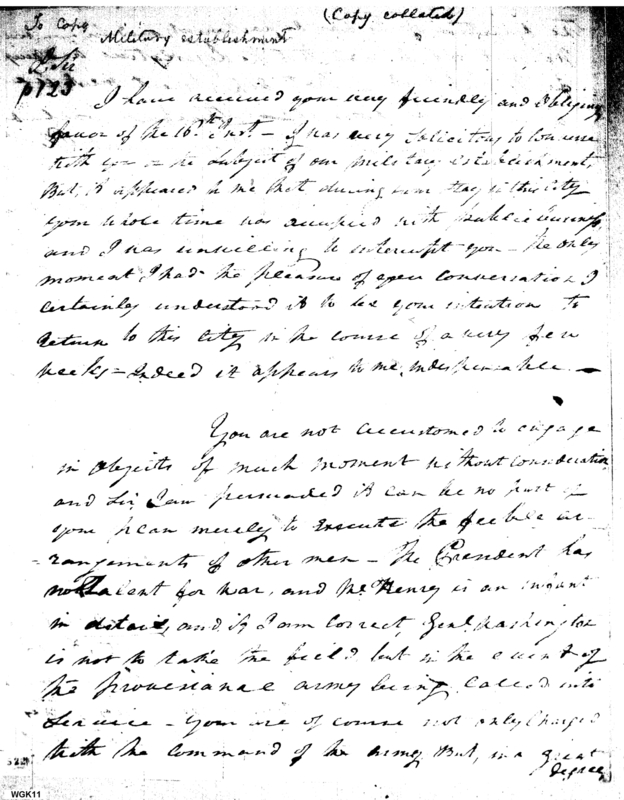 (Copy collated)
To Copy
Military establishment
D. Sir
p 123
I have received your very friendly and obliging
favor of the 16th Inst— I was very solicitous to converse
with you on the subject of our military establishment,
But, it appeared to me that during your stay in this city
your whole time was occupied with publick business,
and I was unwilling to interrupt you— the only
moment, I had the pleasure of your conversation I
certainly understood it to be your intention to
return to this city in the course of a very few
weeks— Indeed it appears to me, indispensable.—
You are not accustomed to engage
in objects of much moment without consideration
and Sir, I am persuaded it can be no part of
your plan merely to execute the feeble ar-
-rangements of other men— The President has
no Talent for war, and McHenry is an infant
in detail, and if I am correct, Genl. Washington
is not to take the field but in the event of
the provisional army being called into
service— You are of course not only charged
with the command of the army, But, in a great
degree
WGK11